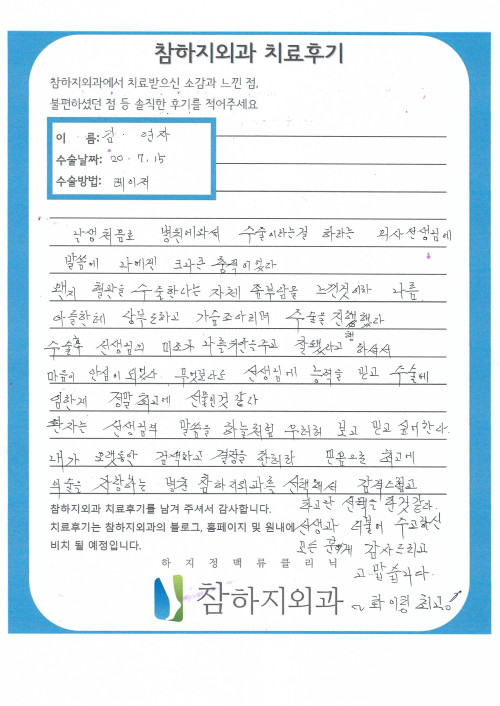 참하지외과 치료후기
참하지외과에서 치료받으신 소감과 느낀 점,
불편하셨던 점 등 솔직한 후기를 적어주세요
이 름: 김 · 연자
수술날짜: 20 · 7 . 15
수술방법: 레이저
난생처음로 병원에와서 수술이라는걸 하라는 의사선생님에
말씀에 나에겐 크나큰 충격이었다
왠지 혈관을 수술한다는 자체 좀부담을 느낀것이라 나름
아들한테 상부하고 가슴조아리며 수술을 진행했다
수술후 선생님의 미소가 나를위안을주고 잘됐다고 하셔서
마음이 안심이 되었다. 무엇보다도 선생님에 능력을 믿고 수술에
임한게 정말 최고에 선물인것 같다
환자는 선생님의 말씀을 하늘처럼 우러러 보고 믿고 싶어한다.
내가 오랫동안 검색하고 결정을 한거라 믿음으로 최고에
의술을 자랑하는 병원 참하지외과를 선택해서 감격스럽고
최고한 선택을 한것같다.
참하지외과 치료후기를 남겨 주셔서 감사합니다.
치료후기는 참하지외과의 블로그, 홈페이지 및 원내에
비치 될 예정입니다.
선생과 더불어 수고하신
모든 분께 감사드리고
고맙습니다.
~ 화이링 최고!
하지정맥류클리닉
참하지외과